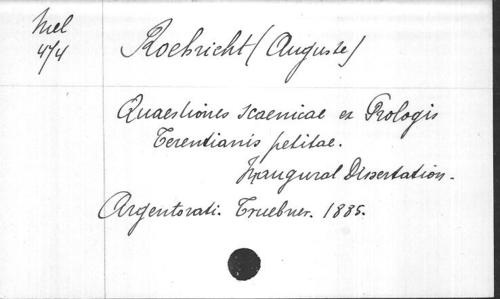 Mel
4/4
Roehricht (Auguste)
Quaestiones scaenicae ex Prologis
Terentianis petitae.
Inaugural Dissertation.
Argentorati. Truebner. 1885.